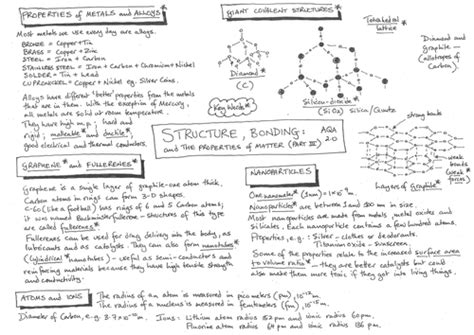 PROPERTIES of METALS and ALLOYS*
Most metals we use every day are alloys.
BRONZE = Copper + Tin
BRASS = Copper + Zinc
STEEL = Iron + Carbon
STAINLESS STEEL = Iron + Carbon + Chromium + Nickel
SOLDER = Tin + Lead
CUPRONICKEL = Copper + Nickel eg. Silver Coins.
Alloys have different 'better' properties from the metals
that are in them. With the exception of Mercury,
all metals are solid at room temperature.
They have high m.p., hard and
rigid; malleable* and ductile*,
good electrical and thermal conductors.
GIANT COVALENT STRUCTURES*
Diamond*
(C)
Tetrahedral
lattice*
Silicon dioxide*
(SiO2) Silica/Quartz
Diamond and
graphite -
(allotropes of
Carbon).
Key Words*
STRUCTURE, BONDING:
and The PROPERTIES of MATTER (PART III)
AQA
2.0
strong bonds
weak bonds
(weak
forces)
Layers of Graphite*
GRAPHENE* and FULLERENES*
Graphene is a single layer of graphite - one atom thick.
Carbon atoms in rings can form 3-D shapes.
C-60 (like a football) has rings of 6 and 5 Carbon atoms;
it was named Buckminsterfullerene - structures of this type
are called fullerenes*.
Fullerenes can be used for drug delivery into the body, as
lubricants and as catalysts. They can also form nanotubes*
(cylindrical* nanotubes) - useful as semi-conductors and
reinforcing materials because they have high tensile strength
and conductivity.
NANOPARTICLES
One nanometer* (1nm) = 1×10⁻⁹m.
Nanoparticles* are between 1 and 100 nm in size.
Most nanoparticles are made from metals, metal oxides and
silicates. Each nanoparticle contains a few hundred atoms.
Properties, e.g.: Silver - clothes or deodorants.
Titanium oxide - sunscreen.
Some of the properties relate to the increased surface area
to volume ratio* - they are better catalysts but could
also make them more toxic if they get into living things.
ATOMS and IONS
The radius of an atom is measured in picometers (pm), 10⁻¹²m.
The radius of a nucleus is measured in femtometers (fm), 10⁻¹⁵m.
Diameter of Carbon, e.g.
Ions: Lithium atom radius 152 pm and ionic radius 60 pm.
Fluorine atom radius 64 pm and ionic radius 136 pm.